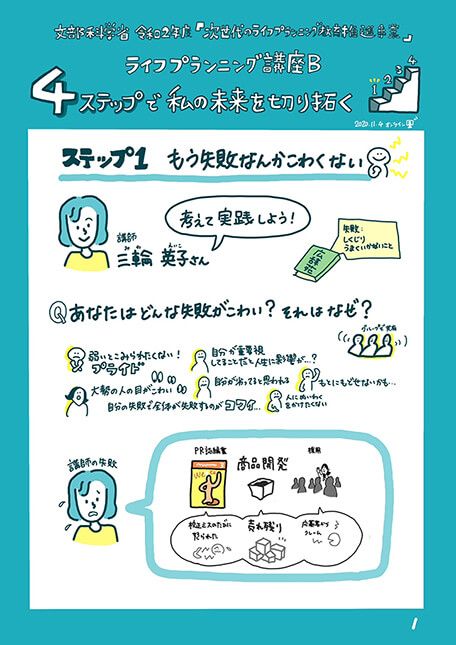 文部科学省 令和2年度「次世代のライフプランニング教育推進事業」
ライフプランニング講座B
4ステップで 私の未来を切り拓く
1 2 3 4
2020.11.4 オンライン
ステップ1 もう失敗なんかこわくない
考えて実践しよう!
講師
三輪 英子さん
失敗:
しくじり
うまくいかないこと
広辞苑
Q あなたはどんな失敗がこわい? それはなぜ?
グループで
弱いとこみられたくない!
プライド
自分が重要視
してることだと人生に影響が…?
大勢の人の目がこわい
自分が劣ってると思われる
もとにもどせないかも…
自分の失敗で全体が失敗するのがコワイ…
人にめいわく
をかけたくない
講師の失敗
PR誌編集
商品開発
採用
校正ミスのたびに
叱られた
売れ残り
応募者から
クレーム
1